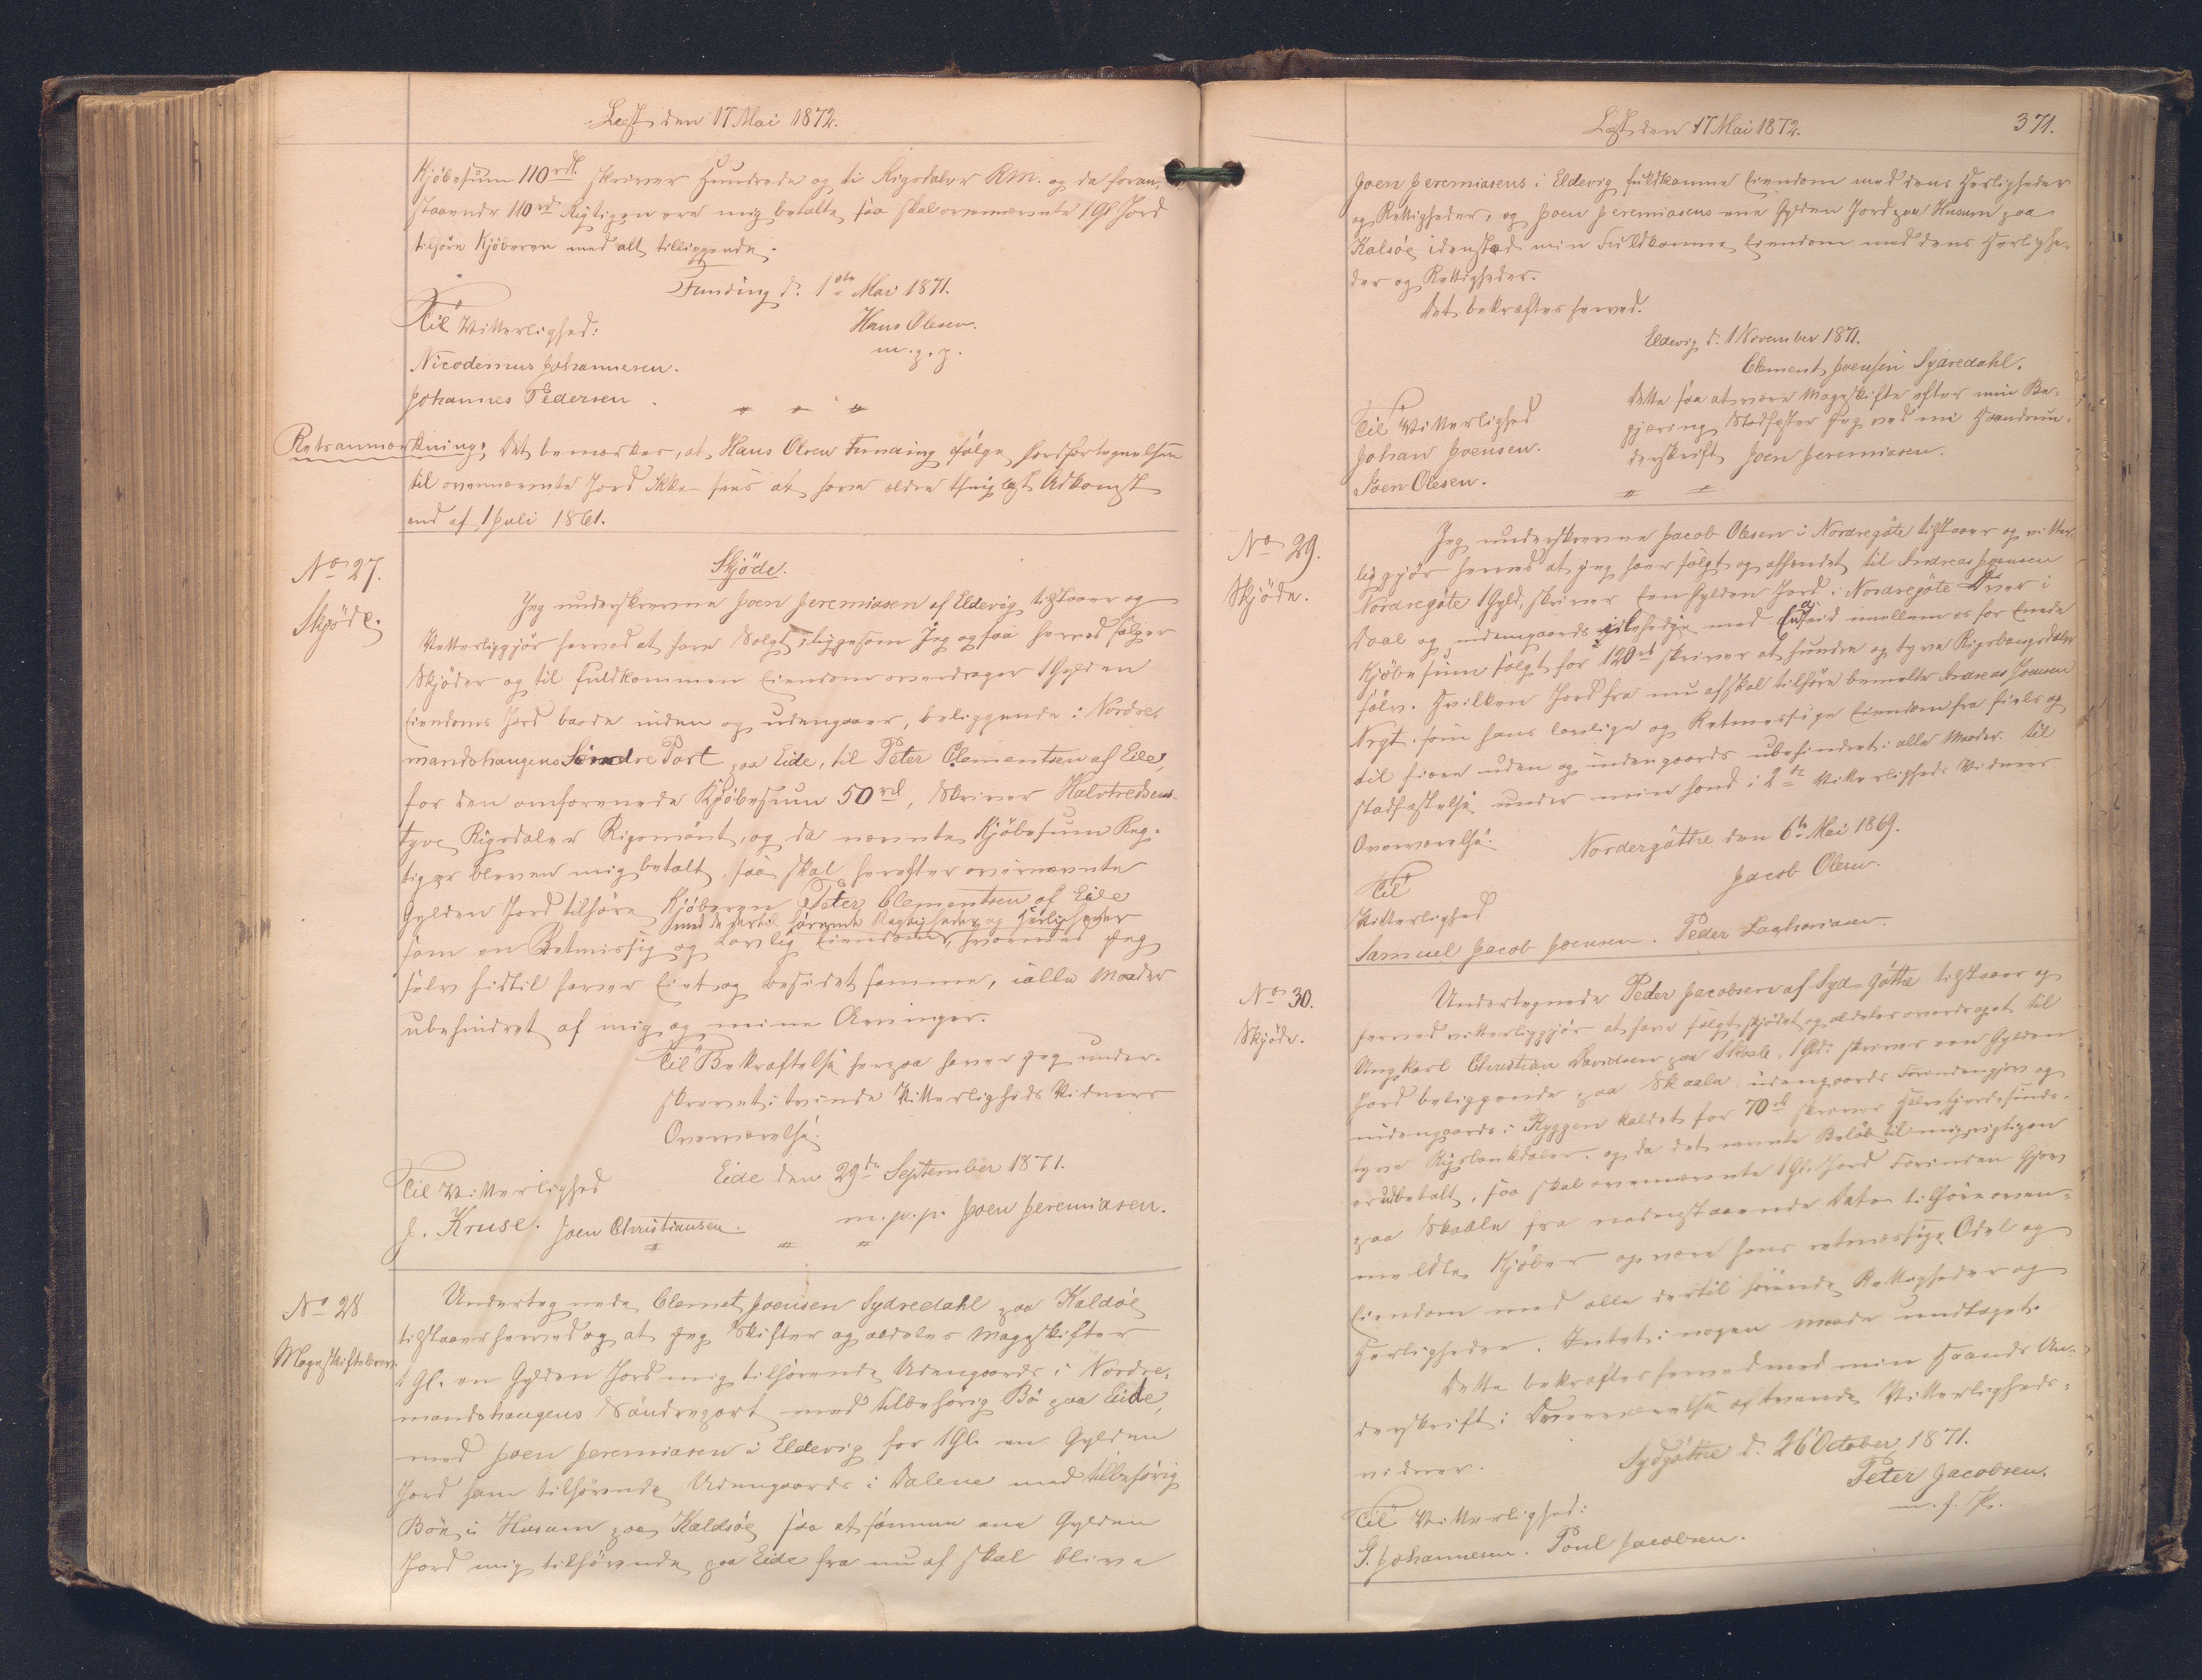 Læst den 17 Mai 1872.
Kjöbesum 110 rdl. skriver Hundrede og ti Rigsdaler RM. og da foran-
staaende 110 rd Rigtigen ere mig betalte, saa skal ovennævnte 1 Gl Jord
tilhøre Kjöberen med alt tilliggende.
Funding d. 1ste Mai 1871.
Til Vitterlighed: Hans Olesen.
Nicodemus Johannesen. m.p.p.
Johannes Pedersen.
Retsanmærkning: Det bemærkes, at Hans Olsen Funding ifølge Jordfortegnelsen
til ovennævnte Jord ikke sees at have ældre thinglæst Adkomst
end af 1 Juli 1861.
No 27.
Skjöde.
Skjöde.
Jeg underskrevne Joen Jeremiasen af Eldevig tilstaaer og
Vitterliggjör herved at have Solgt, ligesom Jeg ogsaa herved sælger
Skjöder og til fuldkommen Eiendom overdrager 1 Gylden
Eiendoms Jord baade inden og udengaars, beliggende i Nordre-
mandshaugens Söndre Part paa Eide, til Peter Clementsen af Eide,
for den omforenede Kjöbesum 50 rd, skriver Halvtredsens-
tyve Rigsdaler Rigsmönt, og da nævnte Kjöbesum Rig-
tig er bleven mig betalt, saa skal herefter ovennævnte
Gylden Jord tilhøre Kjöberen Peter Clementsen af Eide
med de dertil hørende Rettigheder og Herligheder
som en Retmæssig og Lovlig Eiendom, hvormed Jeg
selv hidtil haver Eiet og besidet samme, i alle Maader
ubehindret af mig og mine Arvinger.
Til Bekræftelse herpaa haver Jeg under-
skrevet i tvende Vitterligheds Vidners
Overværelse.
Eide den 29de September 1871.
Til Vitterlighed
J. Kruse. Joen Christiansen. m.p.p. Joen Jeremiasen.
No 28
Mageskiftebrev.
Undertegnede Clemet Joensen Sydredahl paa Kaldöe
tilstaaer herved og at Jeg Skifter og aldeles Mageskifter
1 Gl. en Gylden Jord mig tilhørende Udengaards i Nordre-
mandshaugens Söndrepart med tilbehørig Bö paa Eide,
med Joen Jeremiasen i Eldevig for 1 Gl. en Gylden
Jord ham tilhørende Udengaards i Dalene med tilbehørig
Böe i Husum paa Kaldsöe saa at samme ene Gylden
Jord mig tilhørende paa Eide fra nu af skal blive
Læst den 17 Mai 1872. 371.
Joen Jeremiasens i Eldevig fuldkomne Eiendom med dens Herligheder
og Rettigheder, og Joen Jeremiasens ene Gylden Jord paa Husum paa
Kalsöe idensted min Fuldkomne Eiendom med dens Herlighe-
der og Rettigheder.
Det bekræftes herved.
Eldevig d. 1 November 1871.
Clement Joensen Sydredahl.
Til Vitterlighed
Johan Joensen.
Joen Olesen.
Dette saa at være Mageskifte efter min Be-
gjæring Stadfæster Jeg ved min Haandun-
derskrift Joen Jeremiasen.
No 29.
Skjöde.
Jeg underskrevne Jacob Olesen i Nordregöte tilstaaer og vitter-
liggjör herved at jeg haver solgt og afhændet til Andreas Joensen
Nordregöte 1 Gyld, skriver Een Gylden Jord i Nordregöte
og indengaards med imellem os for Enede
Kjöbesum solgt for 120 rd skriver et hundre og tyve Rigsbanksdaler
sölv. Hvilken Jord fra nu af skal tilhøre bemelte Andreas Joensen
Nrgt. som hans lovlige og Retmessige Eiendom fra fiels og
til fiære uden og indengaards ubehindret i alle Maader. Til
stadfæstelse under min Hand i 2de Vitterligheds Vidners
Overværelse.
Nordergöthe den 6te Mai 1869.
Til Jacob Olesen.
Vitterlighed
Samuel Jacob Joensen. Peder Zachariasen.
No 30.
Skjöde.
Undertegnede Peder Jacobsen af Syd-Göthe tilstaaer og
herved vitterliggjör at have solgt, skjödet og aldeles overdraget til
Ungkarl Christian Davidsen paa Skaale, 1 Gld: skriver een Gylden
Jord beliggende paa Skaale udengaards Forinden og
indengaards i Ryggen kaldet for 70 rd skriver Halvfjerdesinds-
tyve Rigsbankdaler. og da det nævnte Belöb til mig rigtigen
er udbetalt, saa skal ovennævnte 1 Gl. Jord Forinden
paa Skaale fra nedenstaaende Dato tilhøre oven-
meldte Kjöber og være hans retmæssige Odel og
Eiendom med alle dertil hørende Rettigheder og
Herligheder. Intet i nogen maade undtaget.
Dette bekræftes herved med min Haands Un-
derskrift i Overværelse af tvende Vitterligheds-
vidner.
Sydgöthe d. 26 October 1871.
Peter Jacobsen.
Til Vitterlighed:
G. Johannesen. Poul Jacobsen.